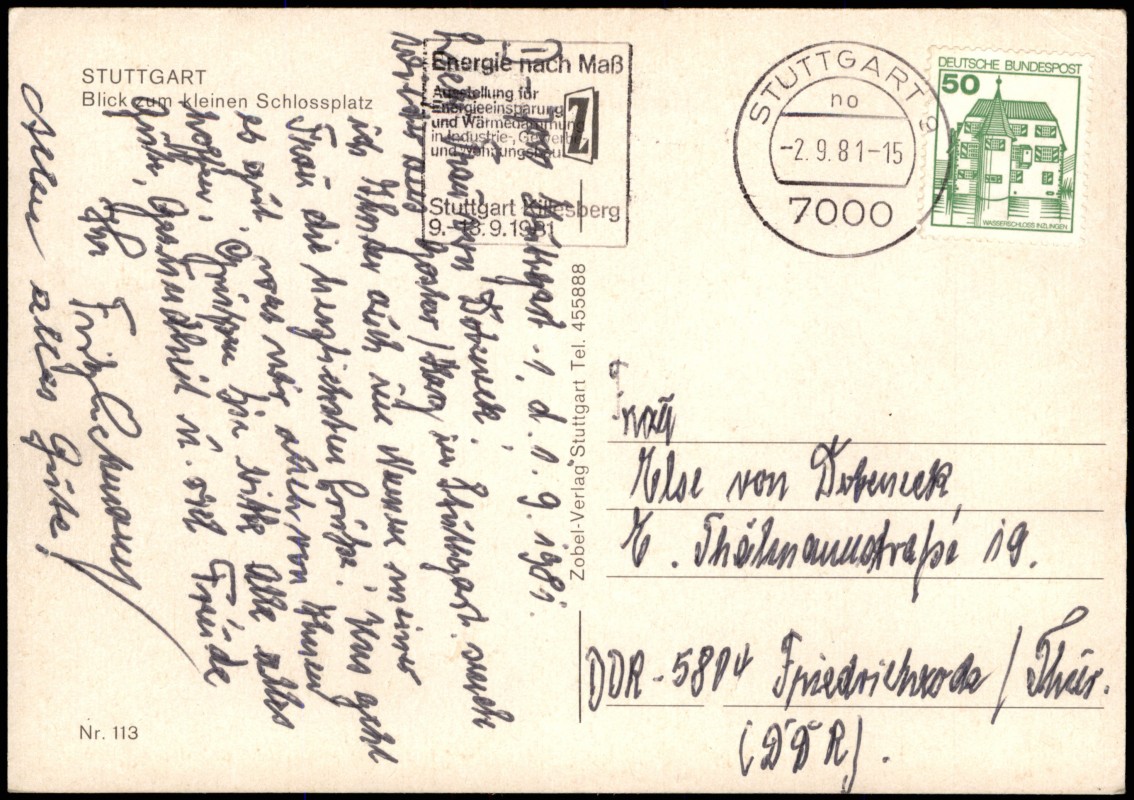 STUTTGART
Blick zum kleinen Schlossplatz
Energie nach Maß
Ausstellung für
Energieeinsparung
und Wärmedämmung
in Industrie-, Gewerbe-
und Wohnungsbau
Stuttgart Killesberg
9.-13.9.1981
STUTTGART 9
no
-2.9.81-15
7000
DEUTSCHE BUNDESPOST
50
WASSERSCHLOSS INZLINGEN
Stuttgart - 1. d. 1. 9. 1981.
Frau von Dobeneck!
aus Goslar / Harz in Stuttgart.
ich Ihnen auch im Namen meiner
Frau die herzlichsten Grüße! Uns geht
es gut, was wir auch von Ihnen
hoffen. Grüßen Sie bitte alle alles
Gute, Gesundheit u. viel Freude
Ihr Fritz
Allen alles Gute!
Zobel-Verlag Stuttgart Tel. 455888
Frau
Else von Dobeneck
E. Thälmannstraße 19.
DDR-5804 Friedrichroda / Thür.
(DDR).
Nr. 113